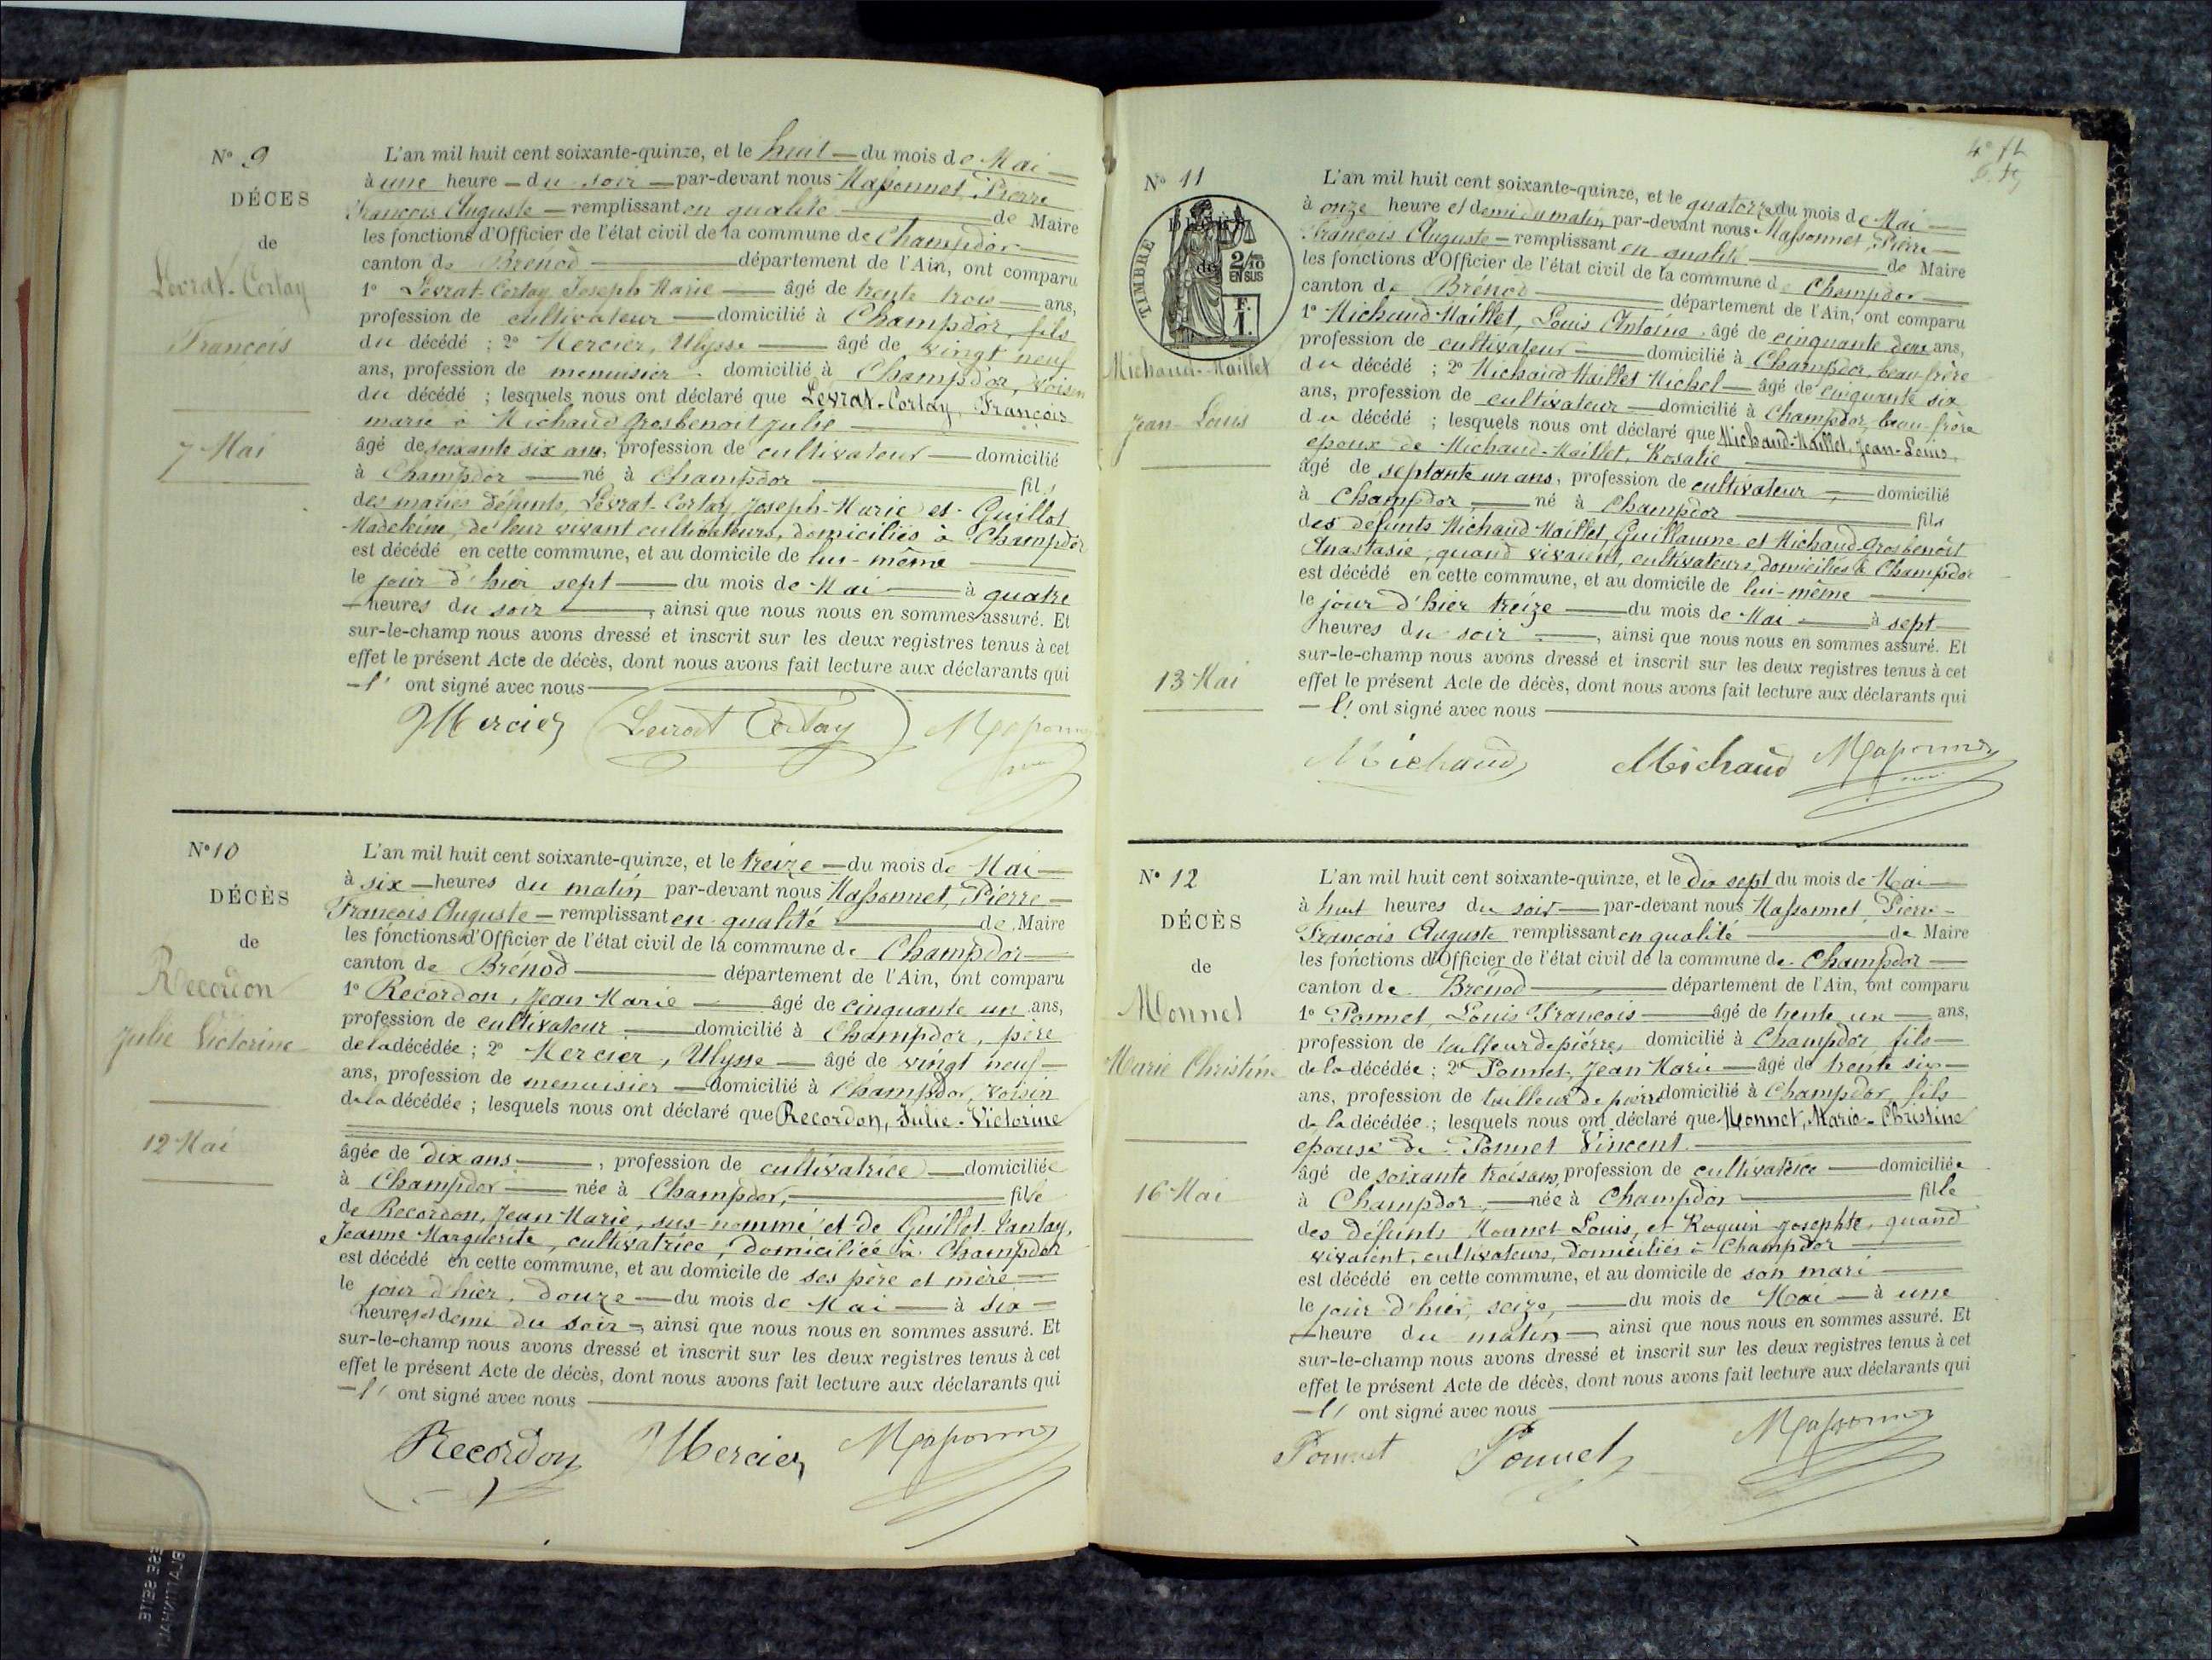 N° 9
DÉCES
de
Levrat-Cortay
François
7 Mai
L'an mil huit cent soixante-quinze, et le huit du mois de Mai
à une heure du soir par-devant nous Massonnet, Pierre
François Auguste remplissant en qualité de Maire
les fonctions d'Officier de l'état civil de la commune de Champdor
canton de Brénod département de l'Ain, ont comparu
1° Levrat-Cortay Joseph Marie âgé de trente trois ans,
profession de cultivateur domicilié à Champdor, fils
du décédé ; 2° Mercier, Ulysse âgé de vingt neuf
ans, profession de menuisier domicilié à Champdor, voisin
du décédé ; lesquels nous ont déclaré que Levrat-Cortay, François
marié à Michaud Grosbenoit Julie
âgé de soixante six ans, profession de cultivateur domicilié
à Champdor né à Champdor fils
des mariés défunts, Levrat-Cortay Joseph-Marie et Guillot
Madeleine, de leur vivant cultivateurs, domiciliés à Champdor
est décédé en cette commune, et au domicile de lui-même
le jour d'hier sept du mois de Mai à quatre
heures du soir, ainsi que nous nous en sommes assuré. Et
sur-le-champ nous avons dressé et inscrit sur les deux registres tenus à cet
effet le présent Acte de décès, dont nous avons fait lecture aux déclarants qui
l' ont signé avec nous
Mercier Levrat Cortay Massonnet
N° 10
DÉCÈS
de
Recordon
Julie Victorine
12 Mai
L'an mil huit cent soixante-quinze, et le treize du mois de Mai
à six heures du matin par-devant nous Massonnet, Pierre
François Auguste remplissant en qualité de Maire
les fonctions d'Officier de l'état civil de la commune de Champdor
canton de Brénod département de l'Ain, ont comparu
1° Recordon, Jean Marie âgé de cinquante un ans,
profession de cultivateur domicilié à Champdor, père
de la décédée ; 2° Mercier, Ulysse âgé de vingt neuf
ans, profession de menuisier domicilié à Champdor, voisin
de la décédée ; lesquels nous ont déclaré que Recordon, Julie-Victorine
âgée de dix ans, profession de cultivatrice domiciliée
à Champdor née à Champdor, fille
de Recordon, Jean Marie, sus-nommé et de Guillot
Jeanne Marguerite, cultivatrice, domiciliée à Champdor
est décédé en cette commune, et au domicile de ses père et mère
le jour d'hier, douze du mois de Mai à six
heures et demi du soir, ainsi que nous nous en sommes assuré. Et
sur-le-champ nous avons dressé et inscrit sur les deux registres tenus à cet
effet le présent Acte de décès, dont nous avons fait lecture aux déclarants qui
l' ont signé avec nous
Recordon Mercier Massonnet
N° 11
TIMBRE
2/10
EN SUS
F.
1.
de
Michaud-Maillet
Jean-Louis
13 Mai
L'an mil huit cent soixante-quinze, et le quatorze du mois de Mai
à onze heure et demi du matin, par-devant nous Massonnet, Pierre
François Auguste remplissant en qualité de Maire
les fonctions d'Officier de l'état civil de la commune de Champdor
canton de Brénod département de l'Ain, ont comparu
1° Michaud Maillet, Louis Antoine âgé de cinquante deux ans,
profession de cultivateur domicilié à Champdor, beau-frère
du décédé ; 2° Michaud Maillet Michel âgé de cinquante six
ans, profession de cultivateur domicilié à Champdor, beau-frère
du décédé ; lesquels nous ont déclaré que Michaud-Maillet, Jean-Louis,
epoux de Michaud-Maillet, Rosalie
âgé de septante un ans, profession de cultivateur, domicilié
à Champdor, né à Champdor fils
des défunts Michaud Maillet, Guillaume et Michaud Grosbenoit
Anastasie, quand vivaient, cultivateurs, domiciliés à Champdor
est décédé en cette commune, et au domicile de lui-même
le jour d'hier treize du mois de Mai à sept
heures du soir, ainsi que nous nous en sommes assuré. Et
sur-le-champ nous avons dressé et inscrit sur les deux registres tenus à cet
effet le présent Acte de décès, dont nous avons fait lecture aux déclarants qui
l' ont signé avec nous
Michaud Michaud Massonnet
N° 12
DÉCÈS
de
Monnet
Marie Christine
16 Mai
L'an mil huit cent soixante-quinze, et le dix sept du mois de Mai
à huit heures du soir par-devant nous Massonnet, Pierre
François Auguste remplissant en qualité de Maire
les fonctions d'Officier de l'état civil de la commune de Champdor
canton de Brénod département de l'Ain, ont comparu
1° Ponnet, Louis François âgé de trente un ans,
profession de tailleur de pierre, domicilié à Champdor fils
de la décédée ; 2° Ponnet, Jean Marie âgé de trente six
ans, profession de tailleur de pierre domicilié à Champdor, fils
de la décédée ; lesquels nous ont déclaré que Monnet, Marie-Christine
epouse de Ponnet Vincent
âgé de soixante trois ans, profession de cultivatrice domiciliée
à Champdor, née à Champdor fille
des défunts Monnet Louis, et Roguin Josephte, quand
vivaient, cultivateurs, domiciliés à Champdor
est décédé en cette commune, et au domicile de son mari
le jour d'hier, seize, du mois de Mai à une
heure du matin ainsi que nous nous en sommes assuré. Et
sur-le-champ nous avons dressé et inscrit sur les deux registres tenus à cet
effet le présent Acte de décès, dont nous avons fait lecture aux déclarants qui
l' ont signé avec nous
Ponnet Ponnet Massonnet